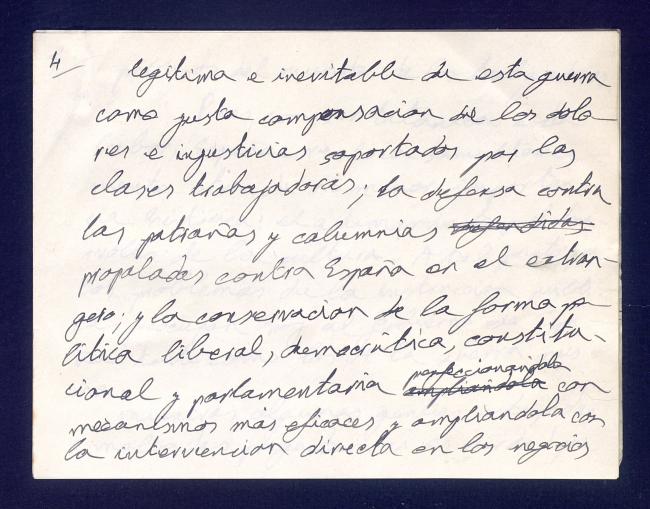 4
legitima e inevitable de esta guerra
como justa compensacion de los dolo
res e injusticias soportados por las
clases trabajadoras; la defensa contra
las patrañas y calumnias defendidas
propaladas contra España en el extran-
gero; y la conservacion de la forma po-
litica liberal, democrática, constitu-
perfeccionandola
cional y parlamentaria ampliandola con
mecanismos más eficaces y ampliandola con
la intervencion directa en los negocios